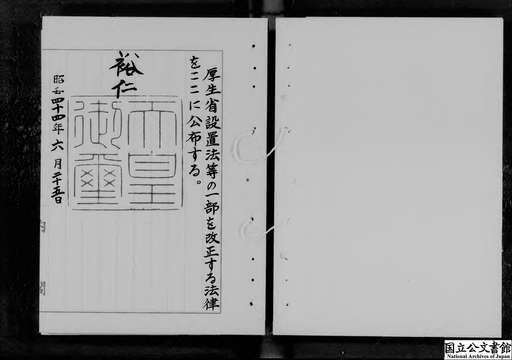 厚生省設置法等の一部を改正する法律
をここに公布する。
裕仁
天皇
御璽
昭和四十四年六月二十五日
内閣
国立公文書館
National Archives of Japan